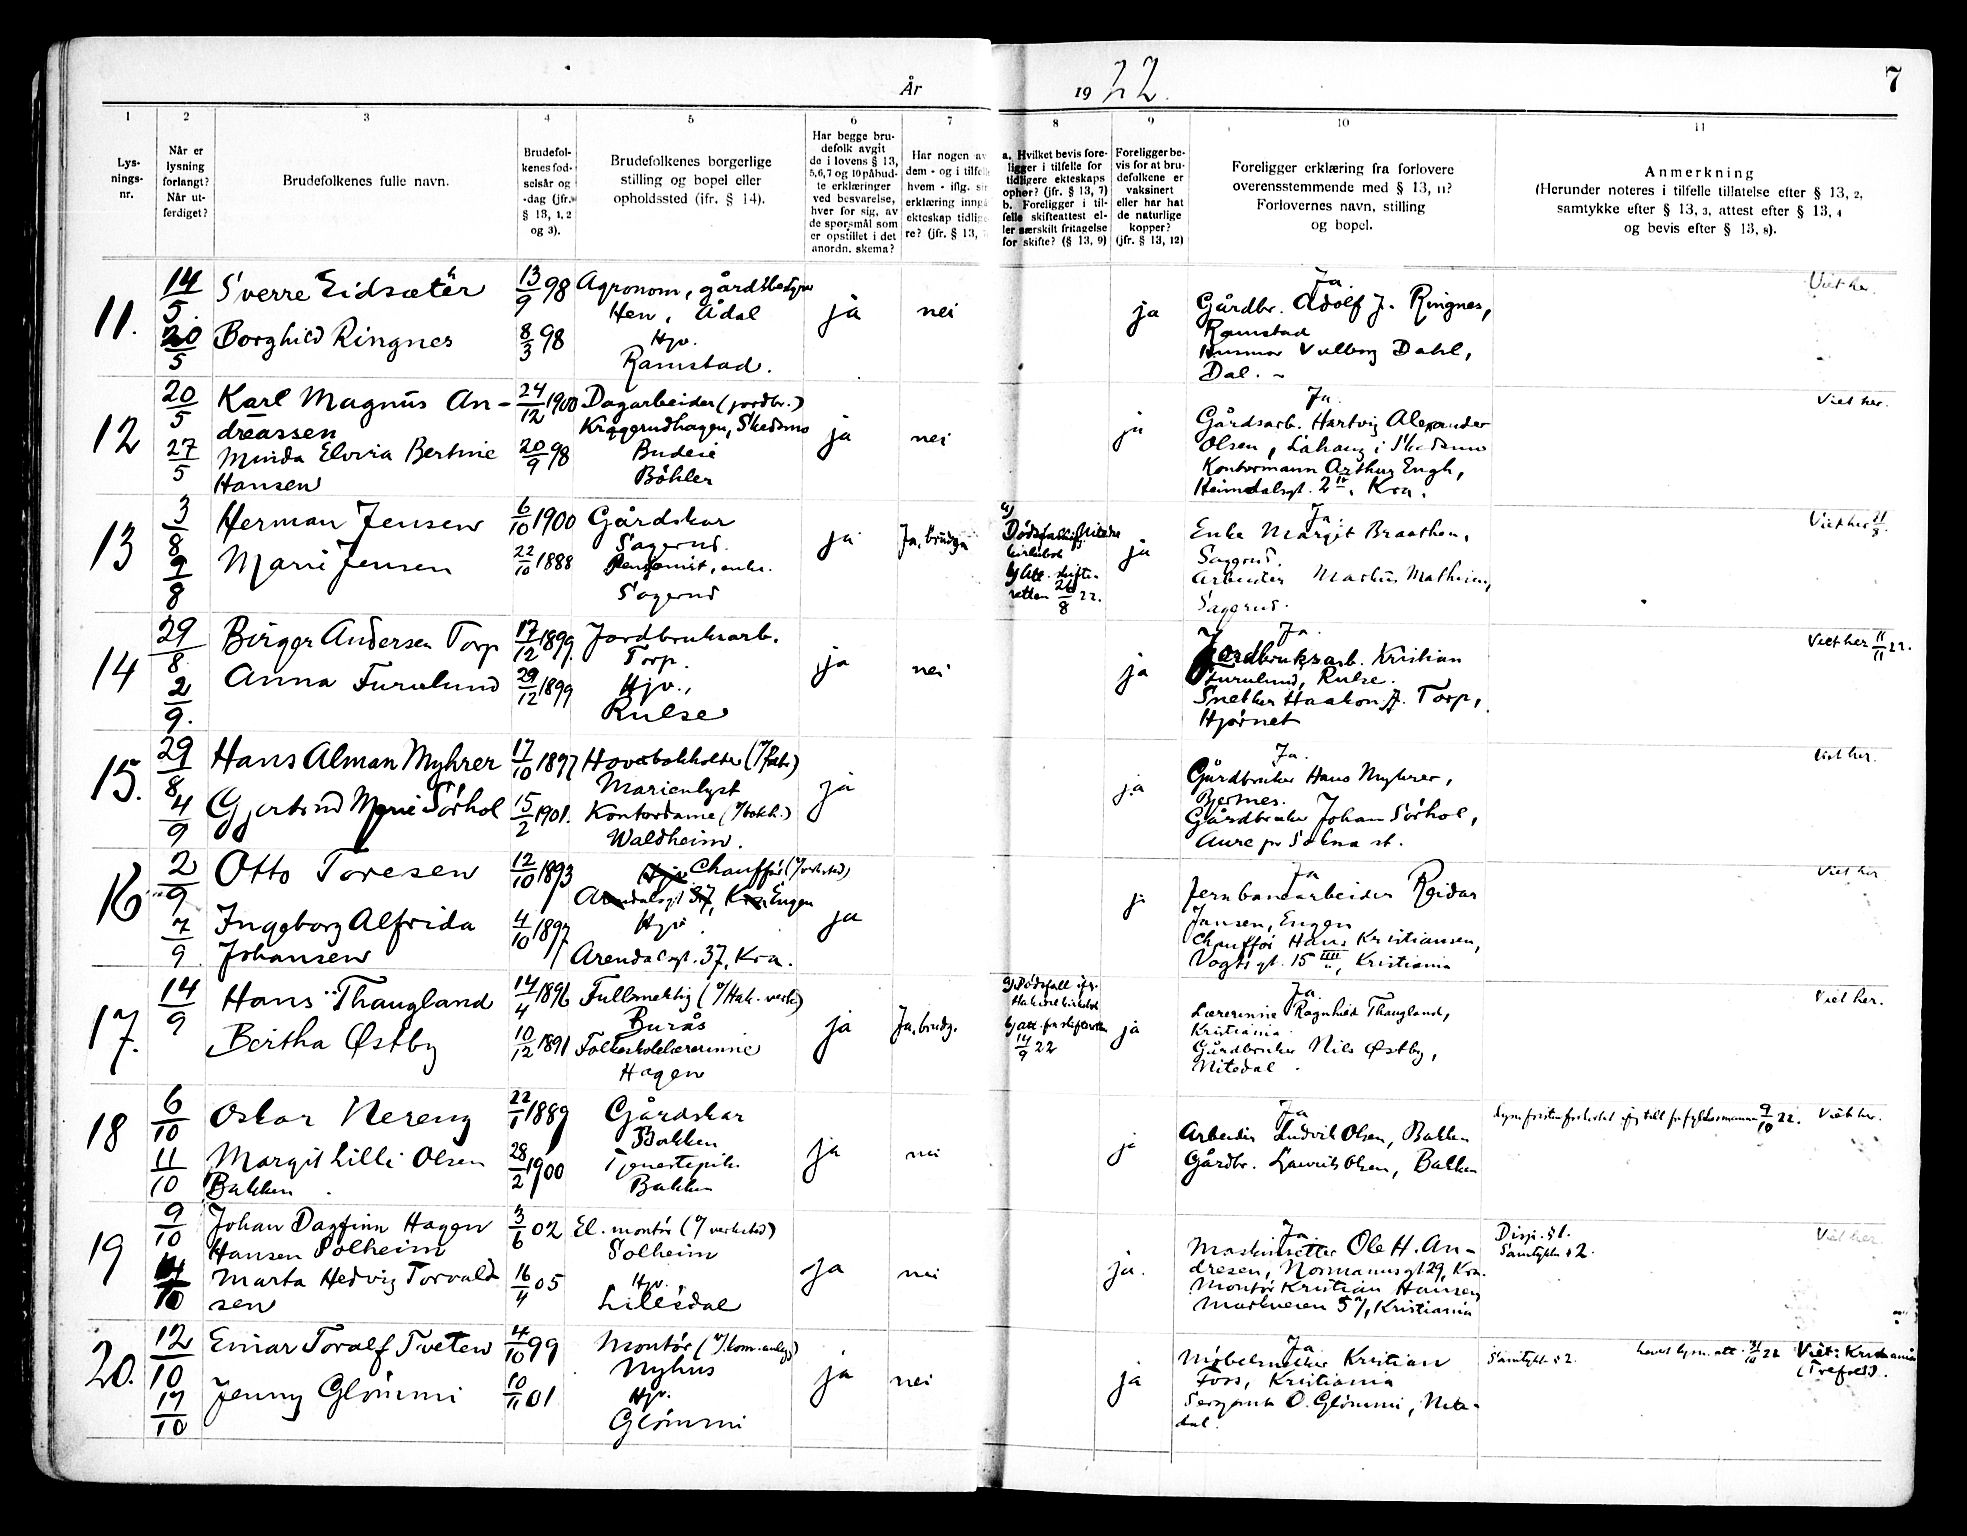 År 1922.
7
1 2 3 4 5 6 7 8 9 10 11
Lys-
nings-
nr.
Når er
lysning
forlangt?
Når ut-
ferdiget?
Brudefolkenes fulle navn.
Brudefol-
kenes fød-
selsår og
-dag (jfr.
§ 13, 1, 2
og 3).
Brudefolkenes borgerlige
stilling og bopel eller
opholdssted (jfr. § 14).
Har begge bru-
defolk avgit
de i lovens § 13,
5,6,7 og 10 påbud-
te erklæringer
ved besvarelse,
hver for sig, av
de spørsmål som
er opstillet i det
anordn. skema?
Har nogen av
dem - og i tilfelle
hvem - iflg. sin
erklæring inngå
ekteskap tidlige-
re? (jfr. § 13,
a. Hvilket bevis fore-
ligger i tilfelle for
tidligere ekteskaps
ophør? (jfr. § 13, 7)
b. Foreligger i til-
felle skifteattest el-
ler særskilt fritagelse
for skifte? (§ 13, 9)
Foreligger be-
vis for at bru-
defolkene er
vaksinert
eller har hat
de naturlige
kopper?
(jfr. § 13, 12)
Foreligger erklæring fra forlovere
overensstemmende med § 13, 11?
Forlovernes navn, stilling
og bopel.
Anmerkning
(Herunder noteres i tilfelle tillatelse efter § 13, 2,
samtykke efter § 13, 3, attest efter § 13, 4
og bevis efter § 13, 8).
11.
14/5
20/5
Sverre Eidsæter
Borghild Ringnes
13/9 98
8/3 98
Agronom, gårdsbestyrer
Hen, Ådal
Hjv.
Ramstad.
ja
nei
ja
Ja.
Gårdbr. Adolf J. Ringnes,
Ramstad
Dahl,
Dal.
Viet her.
12
20/5
27/5
Karl Magnus An-
dreassen
Minda Elvira Bertine
Hansen
24/12 1900
20/9 98
Dagarbeider (jordbr.)
Kryggerudhagen, Skedsmo
Budeie
Bøhler
ja
nei
ja
Ja.
Gårdsarb. Hartvig Alexander
Olsen, Låhaug i Skedsmo
Kontormann Arthur Engh,
Heimdalsgt. 2 IV. Kra.
Viet her.
13
3/8
9/8
Herman Jensen
Marie Jensen
6/10 1900
22/10 1888
Gårdskar
Sagerud.
Pensjonist, enke.
Sagerud
ja
Ja, brudgn
a)
Dødsfall ifl. Nitedal
kirkebok
b) Att. skifte-
retten 26/8 22.
ja
Ja
Enke Margit Braathen,
Sagerud.
Arbeider Markus Mathisen,
Sagerud.
Viet her 21/9.
14
29/8
2/9.
Birger Andersen Torp
Anna Furulund
17/12 1899.
29/12 1899
Jordbruksarb.
Torp.
Hjv.,
Rulse
ja
nei
ja
Ja.
Jordbruksarb. Kristian
Furulund, Rulse.
Snekker Haakon A. Torp,
Hjørnet
Viet her 11/11 22.
15.
29/8
4/9
Hans Alman Myhrer
Gjertrud Marie Sørhol
17/10 1897
15/2 1901.
Hovedbokholder (v/fabr)
Marienlyst
Kontordame (v/bokh.)
Waldheim.
ja
ja
Ja.
Gårdbruker Hans Myhrer,
Bjertnes.
Gårdbruker Johan Sørhol,
Aure pr Søkna st.
Viet her.
16
2/9
7/9
Otto Toresen
Ingeborg Alfrida
Johansen
12/10 1893
4/10 1897
Hjv Chauffør (v/verksted)
Arendalsgt 37, Kra. Engen
Hjv.
Arendalsgt. 37, Kra.
ja
ja
Ja
Jernbanearbeider Reidar
Jansen, Engen
Chauffør Hans Kristiansen,
Vogtsgt. 15 IIII, Kristiania
Viet her
17.
14/9
Hans Thaugland
Bertha Østby
14/4 1896
10/12 1891
Fullmektig (v/Hak. verk)
Burås
Folkeskolelærerinne
Hagen
ja
Ja, brudg.
a) Dødsfall ifr.
Hakedal kirkebok
b) att. fr skifteretten
14/9 22
ja
Ja.
Lærerinne Ragnhild Thaugland,
Kristiania.
Gårdbruker Nils Østby,
Nitedal.
Viet her.
18
6/10
11/10
Oskar Nereng
Margit Lilli Olsen
Bakken.
22/1 1889
28/2 1900
Gårdskar
Bakken
Tjenestepike
Bakken
ja
nei
ja
Ja
Arbeider Ludvik Olsen, Bakken
Gårdbr. Laurits Olsen, Bakken
Lysn. fristen forkortet ifg till fr fylkesmannen 9/10 22. Viet her.
19
9/10
14/10
Johan Dagfinn Hagen
Hansen Solheim
Marta Hedvig Torvald-
sen
3/6 02
16/11 05
El. montør (v/ verksted)
Solheim
Hjv.
Lillesdal
ja
nei
ja.
Ja.
Maskinsetter Ole H. An-
dresen, Normannsgt 29, Kra.
Montør Kristian Hansen
Markveien 57, Kristiania
Disp. § 1.
Samtykke § 2.
Viet her
20.
12/10
17/10
Einar Toralf Tveten
Jenny Glømmi
4/10 99
10/11 01
Montør (v/kom. anlegg)
Nyhus
Hjv.
Glømmi
ja
nei
ja
Ja
Møbelsnekker Kristian
Foss, Kristiania
Sersjant O. Glømmi, Nite-
dal.
Samtykke § 2.
lysn. att. 22 Viet i Kristiania
(Trefold).